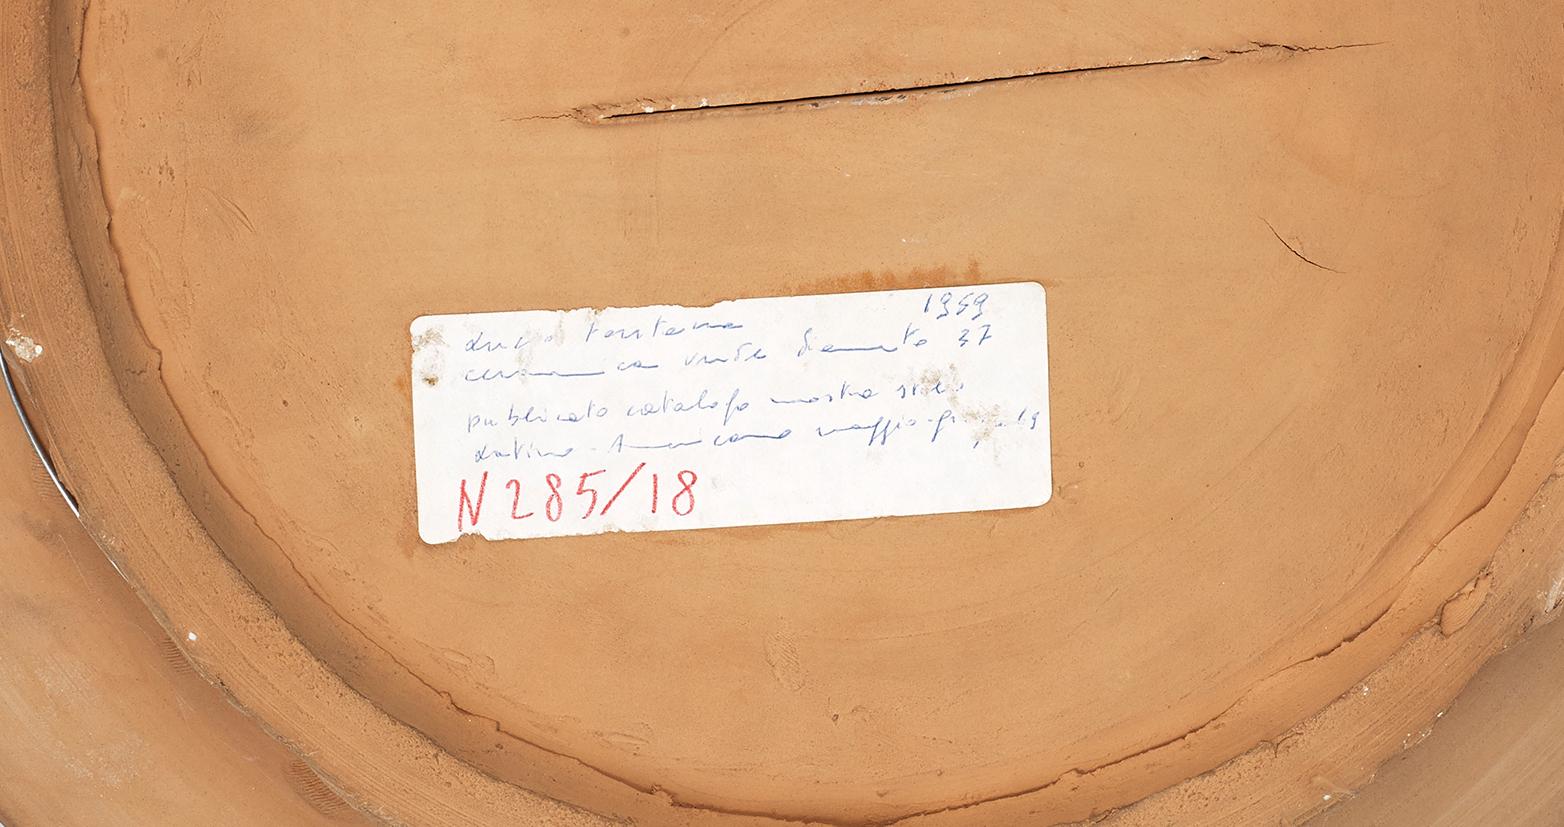 Lucio Fontana 1959
ceramica verde diametro 37
pubblicato catalogo mostra
Latino-Americano maggio-giugno
N 285/18